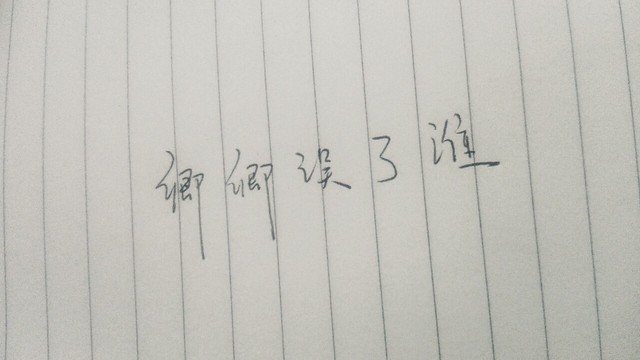 卿卿误了谁